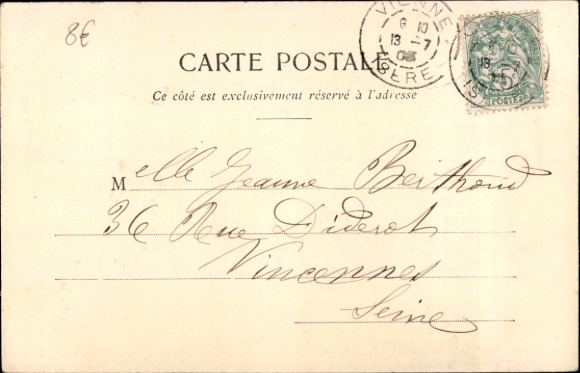 8€
VIENNE
6 10
13 - 7
03
ISERE
5
POSTES
CARTE POSTALE
Ce côté est exclusivement réservé à l'adresse
Melle Jeanne Berthoud
36 Rue Diderot
Vincennes
Seine